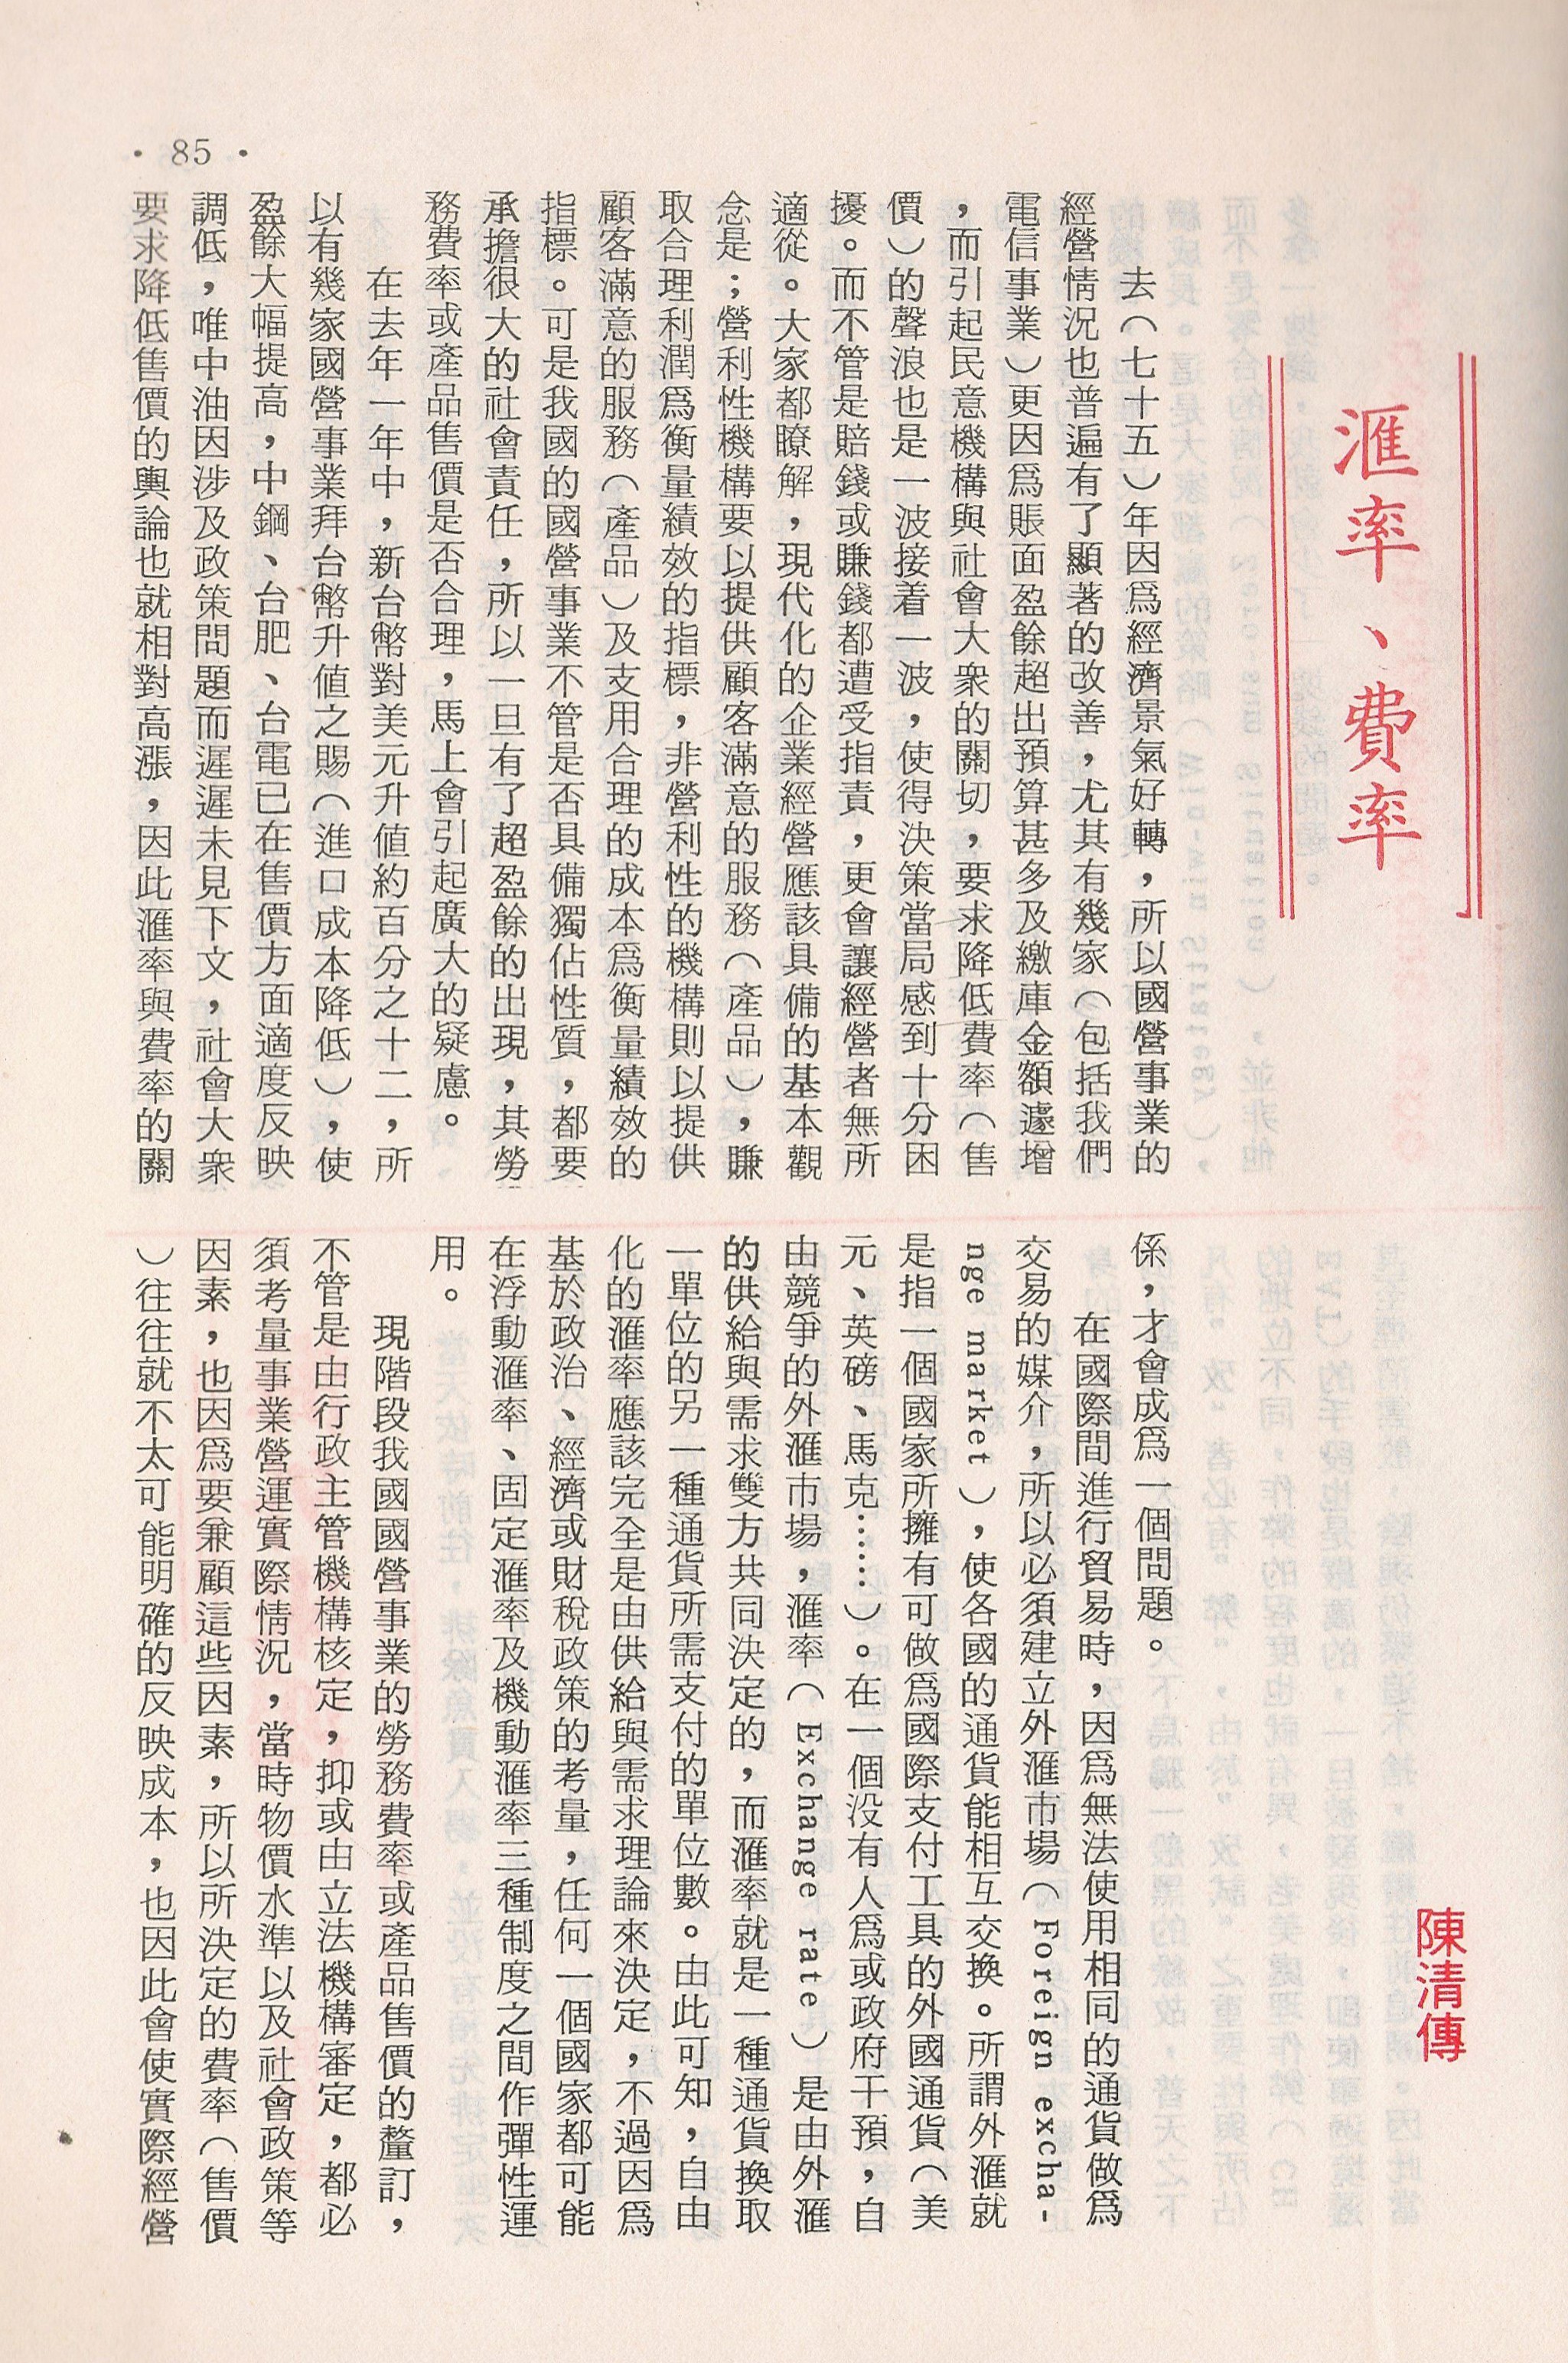 匯率、費率
陳清傳
去（七十五）年因爲經濟景氣好轉，所以國營事業的
經營情況也普遍有了顯著的改善，尤其有幾家（包括我們
電信事業）更因爲賬面盈餘超出預算甚多及繳庫金額遽增
，而引起民意機構與社會大衆的關切，要求降低費率（售
價）的聲浪也是一波接着一波，使得決策當局感到十分困
擾。而不管是賠錢或賺錢都遭受指責，更會讓經營者無所
適從。大家都瞭解，現代化的企業經營應該具備的基本觀
念是；營利性機構要以提供顧客滿意的服務（產品），賺
取合理利潤爲衡量績效的指標，非營利性的機構則以提供
顧客滿意的服務（產品）及支用合理的成本爲衡量績效的
指標。可是我國的國營事業不管是否具備獨佔性質，都要
承擔很大的社會責任，所以一旦有了超盈餘的出現，其勞
務費率或產品售價是否合理，馬上會引起廣大的疑慮。
在去年一年中，新台幣對美元升値約百分之十二，所
以有幾家國營事業拜台幣升値之賜（進口成本降低），使
盈餘大幅提高，中鋼、台肥、台電已在售價方面適度反映
調低，唯中油因涉及政策問題而遲遲未見下文，社會大衆
要求降低售價的輿論也就相對高漲，因此滙率與費率的關
係，才會成爲一個問題。
在國際間進行貿易時，因爲無法使用相同的通貨做爲
交易的媒介，所以必須建立外滙市場（Foreign excha-
nge market），使各國的通貨能相互交換。所謂外滙就
是指一個國家所擁有可做爲國際支付工具的外國通貨（美
元、英磅、馬克……）。在一個没有人爲或政府干預，自
由競爭的外滙市場，滙率（Exchange rate）是由外滙
的供給與需求雙方共同決定的，而滙率就是一種通貨換取
一單位的另一種通貨所需支付的單位數。由此可知，自由
化的滙率應該完全是由供給與需求理論來決定，不過因爲
基於政治、經濟或財稅政策的考量，任何一個國家都可能
在浮動滙率、固定滙率及機動滙率三種制度之間作彈性運
用。
現階段我國國營事業的勞務費率或產品售價的釐訂，
不管是由行政主管機構核定，抑或由立法機構審定，都必
須考量事業營運實際情況，當時物價水準以及社會政策等
因素，也因爲要兼顧這些因素，所以所決定的費率（售價
）往往就不太可能明確的反映成本，也因此會使實際經營
• 85 •